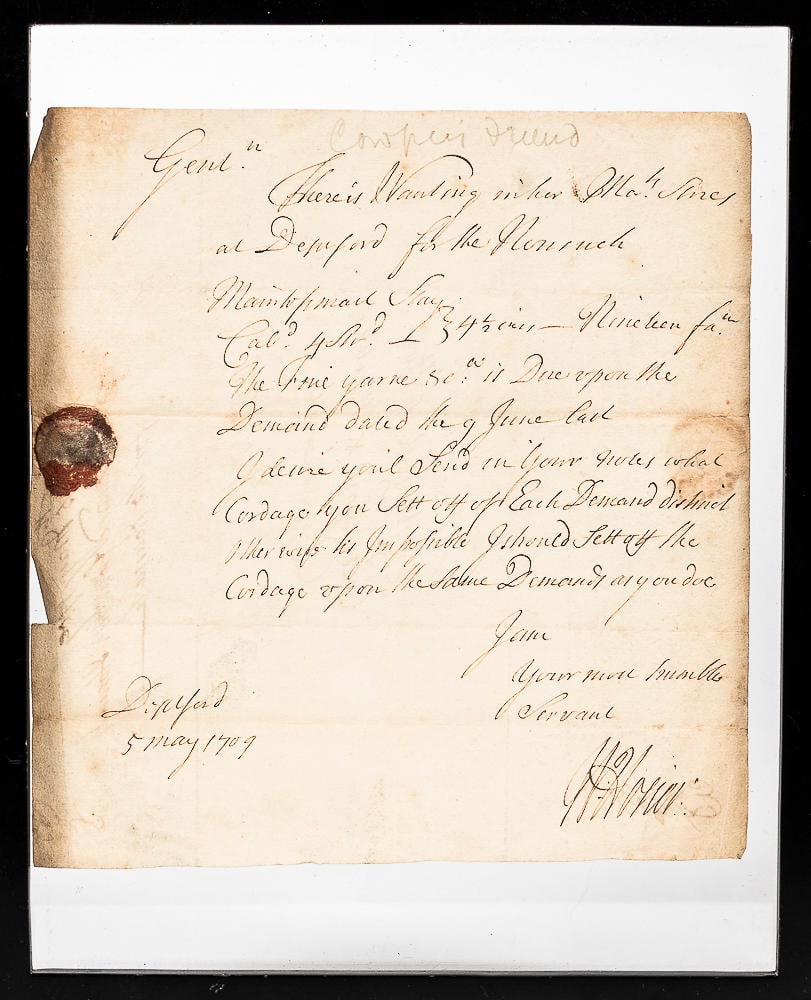 Cowpers friend
Gent.n
There is Wanting in her Ma.ts Stores
at Deptford for the Nonsuch
Maintopmast Stay
Cab.d 4 Str.d 1 } 4½ ins — Nineteen fa.m
The fine yarne &c.a is Due upon the
Demand dated the 9 June last
I desire you'l Send in Your notes what
Cordage you Sett off of Each Demand distinct
otherwise tis Impossible I should Sett off the
Cordage upon the Same Demands as you doe
I am
Your most humble
Servant
Deptford
5 may 1709